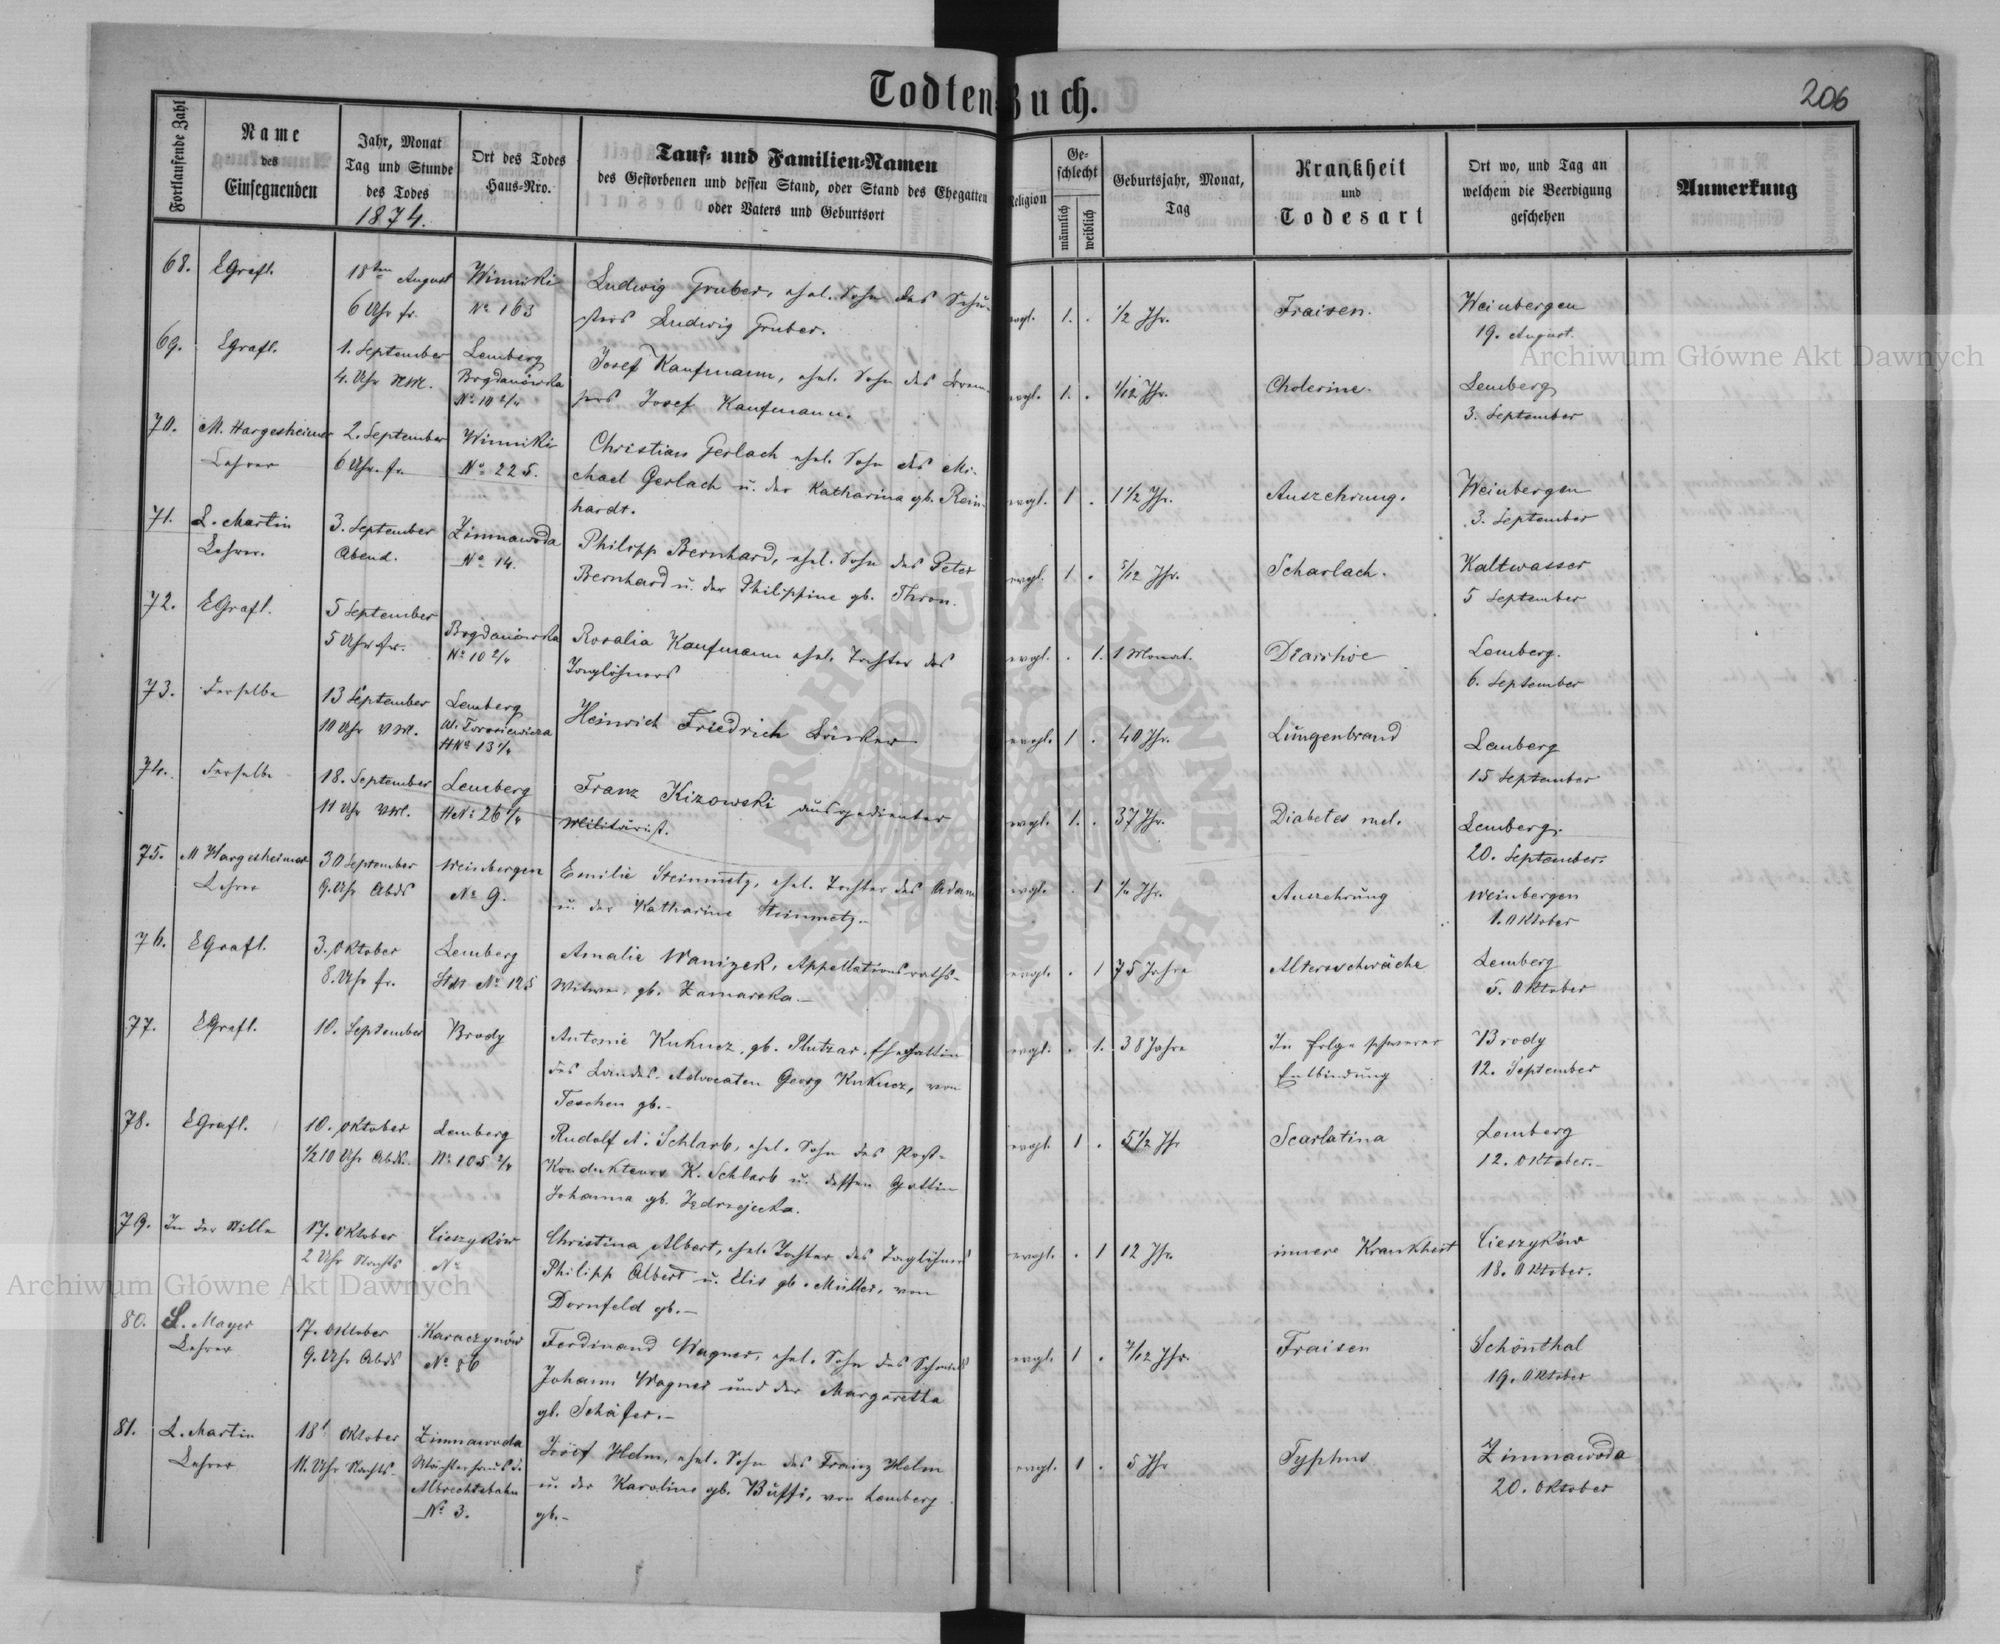 Todten-Buch.
206
Fortlaufende Zahl
Name
des
Einsegnenden
Jahr, Monat
Tag und Stunde
des Todes
1874.
Ort des Todes
Haus-Nro.
Tauf- und Familien-Namen
des Gestorbenen und dessen Stand, oder Stand des Ehegatten
oder Vaters und Geburtsort
Religion
Ge-
schlecht
männlich
weiblich
Geburtsjahr, Monat,
Tag
Krankheit
und
Todesart
Ort wo, und Tag an
welchem die Beerdigung
geschehen
Anmerkung
68. EGrafl. 18ten August Winniki Ludwig Gruber, ehel. Sohn des Schu-
6 Uhr fr. No 163 sters Ludwig Gruber. evgl. 1. . 1/2 Jhr. Fraisen. Weinbergen
19. August.
69. EGrafl. 1. September Lemberg Josef Kaufmann, ehel. Sohn des
4. Uhr NM. Bogdanówka Josef Kaufmann. evgl. 1. . 1/12 Jhr. Cholerine. Lemberg
No 10 2/4 3. September
70. M. Hargesheimer 2. September Winniki Christian Gerlach ehel. Sohn des Mi-
Lehrer 6 Uhr fr. No 225. chael Gerlach u. der Katharina gb. Rein-
hardt. evgl. 1 . 1 1/2 Jhr. Auszehrung. Weinbergen
3. September
71. L. Martin 3. September Zimnawoda Philipp Bernhard, ehel. Sohn des Peter
Lehrer. Abend. No 14. Bernhard u. der Philippine gb. Thron. evgl. 1 . 5/12 Jhr. Scharlach. Kaltwasser
5 September
72. EGrafl. 5 September Bogdanówka Rosalia Kaufmann ehel. Tochter des
5 Uhr fr. No 10 2/4 Taglöhners evgl. . 1. 1 Monat. Diarrhöe Lemberg.
6. September
73. Derselbe 13 September Lemberg Heinrich Friedrich
10 Uhr VM. HNo 13 1/4 evgl. 1 . 40 Jhr. Lungenbrand Lemberg
15 September
74. Derselbe 18. September Lemberg Franz Kizowski ausgedienter
11 Uhr VM. HNo 26 1/4 Militärist. evgl. 1. . 37 Jhr. Diabetes mel. Lemberg.
20. September.
75. M Hargesheimer 30 September Weinbergen Emilie Steinmetz, ehel. Tochter des Adam
Lehrer 9. Uhr Abds No 9. u. der Katharine Steinmetz.— evgl. . 1 Jhr. Auszehrung Weinbergen
1. Oktober
76. EGrafl. 3. Oktober Lemberg Amalie Wanizek, Appellationsraths-
8. Uhr fr. No 125 Witwe, gb. Zamarska.— evgl. . 1 75 Jahre Altersschwäche Lemberg
5. Oktober
77. EGrafl. 10. September Brody Antonie Kukucz, gb. Plutzar, Ehegattin
des Landes-Advocaten Georg Kukucz, von
Teschen gb.— evgl. . 1. 38 Jahre In folge schwerer Brody
Entbindung 12. September
78. EGrafl. 10. Oktober Lemberg Rudolf A. Schlarb, ehel. Sohn des Post-
1/2 10 Uhr Abds. No 105 2/4 Kondukteurs K. Schlarb u. dessen Gattin
Johanna gb. Jędrzejecka. evgl. 1 . 5 1/2 Jhr Scarlatina Lemberg
12. Oktober.—
79. In der Stille 17. Oktober Cieszyków Christina Albert, ehel. Tochter des Taglöhners
2 Uhr Nachts No Philipp Albert u. Elis gb. Müller, von
Dornfeld gb.— evgl. . 1 12 Jhr. innere Krankheit Cieszyków
18. Oktober.
80. L. Mayer 17. Oktober Karaczynów Ferdinand Wagner, ehel. Sohn des
Lehrer 9. Uhr Abds No 86 Johann Wagner und der Margaretha
gb. Schäfer.— evgl. 1 . 7/12 Jhr. Fraisen Schönthal
19. Oktober
81. L. Martin 18t Oktober Zimnawoda Josef Helm, ehel. Sohn des Franz Helm
Lehrer 11. Uhr Nachts. Wächterhaus d. u. der Karoline gb. Buffi, von Lemberg
Albrechtsbahn gb.— evgl. 1 . 5 Jhr Typhus Zimnawoda
No 3. 20. Oktober
Archiwum Główne Akt Dawnych
Archiwum Główne Akt Dawnych
ARCHIWUM GŁÓWNE AKT DAWNYCH